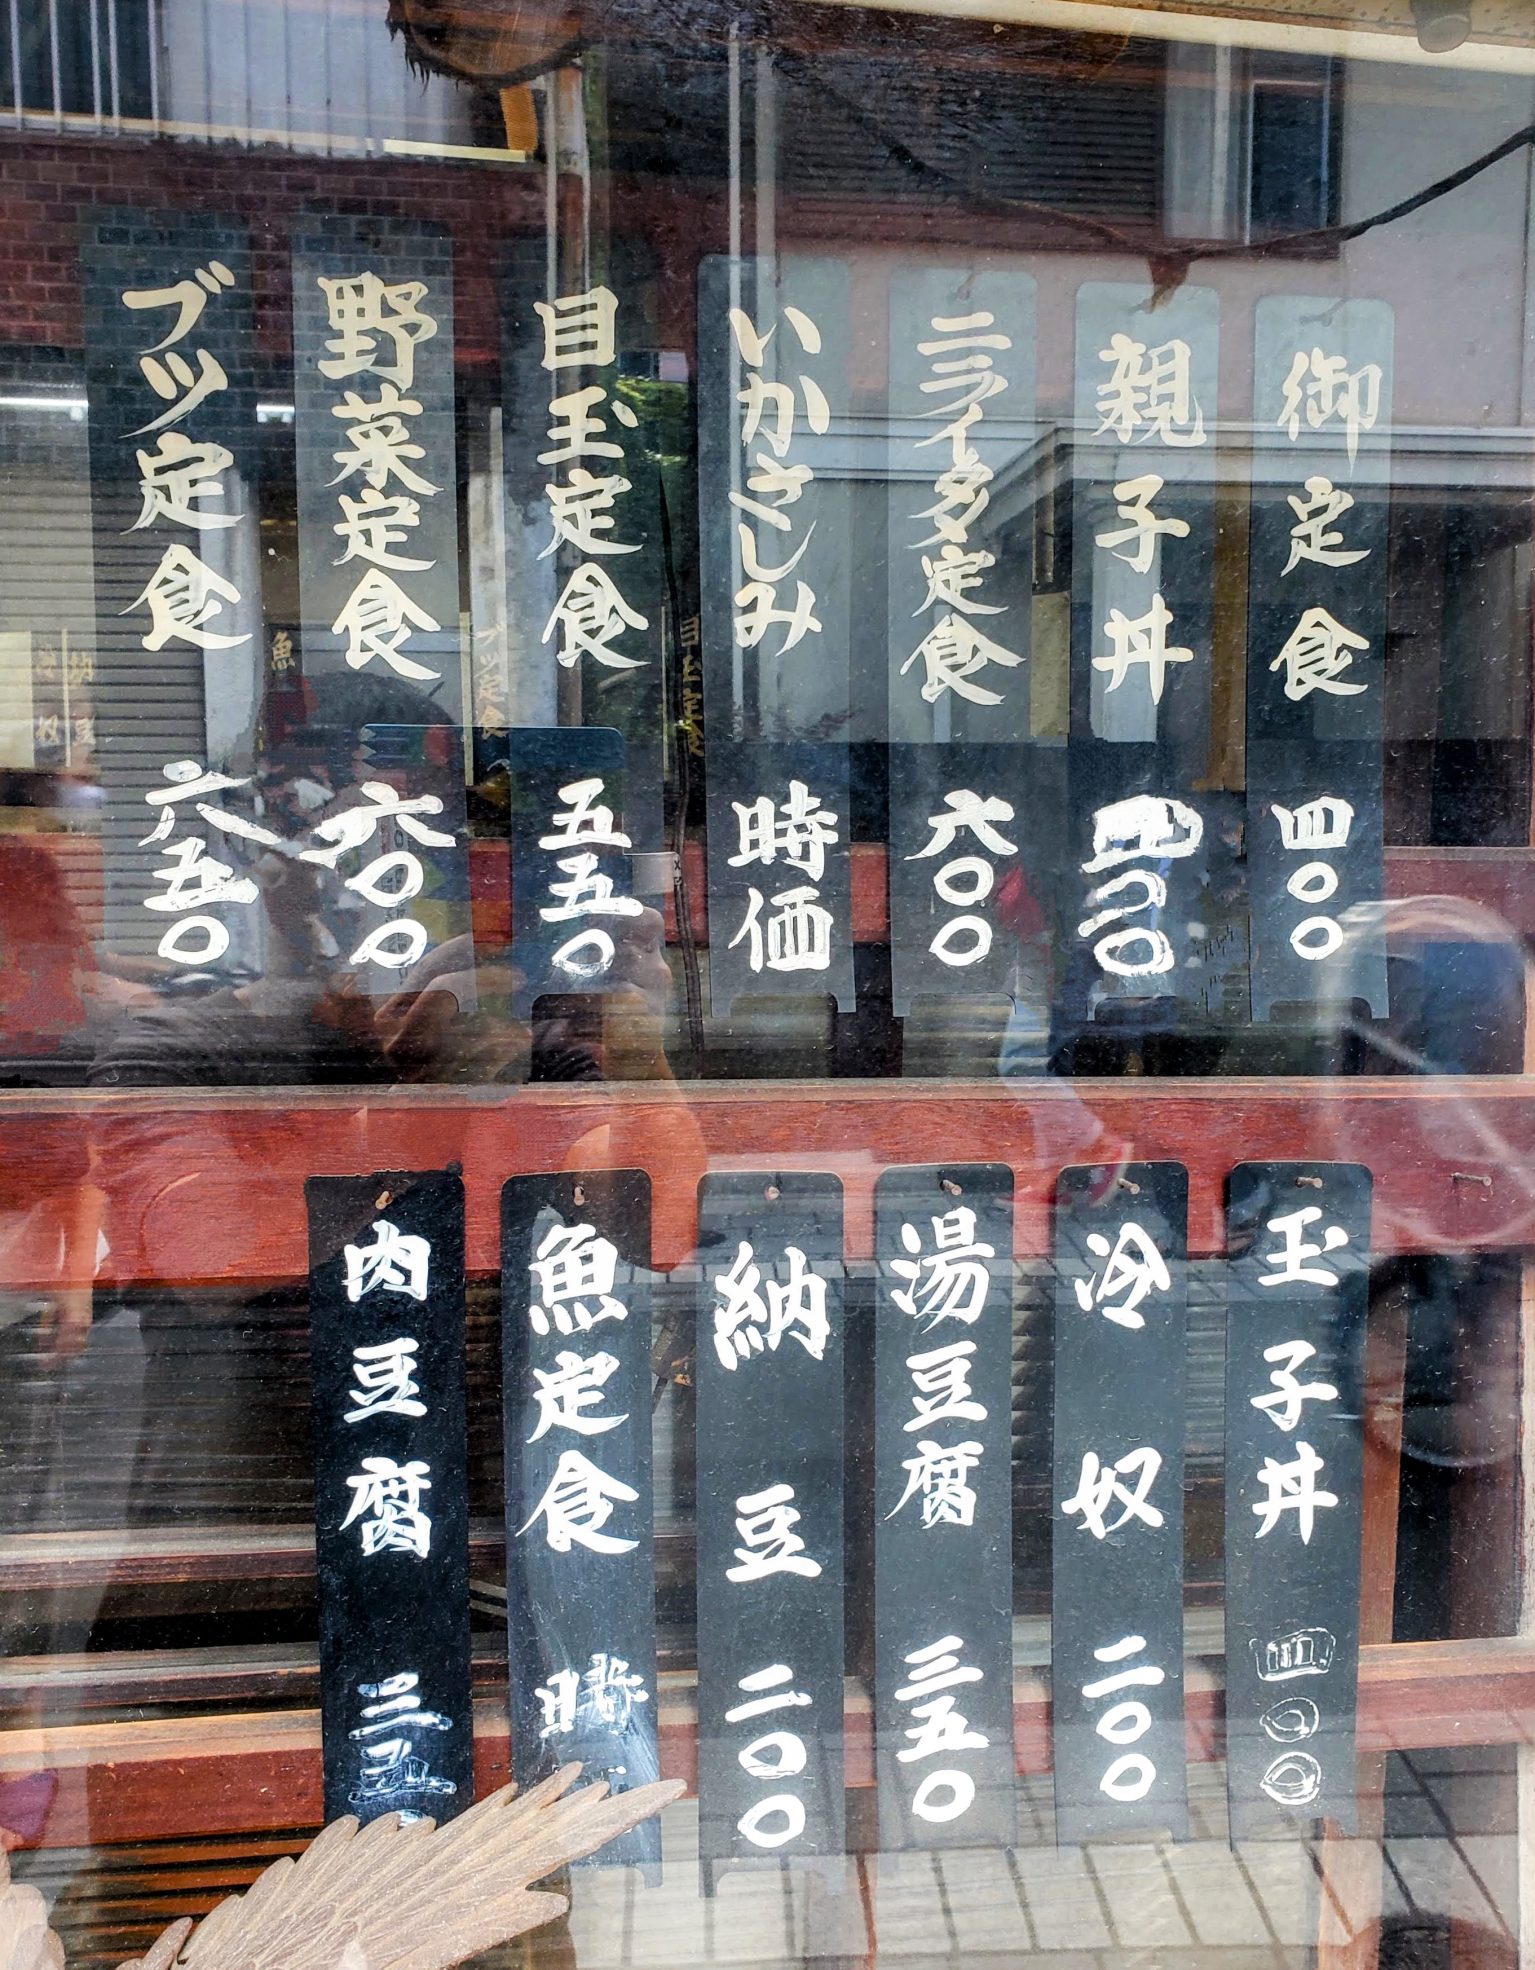 御定食 四〇〇
親子丼
ニライタメ定食 六〇〇
いかさしみ 時価
目玉定食 五五〇
野菜定食 六〇〇
ブツ定食 六五〇
玉子丼 四〇〇
冷奴 二〇〇
湯豆腐 三五〇
納豆 二〇〇
魚定食 時
肉豆腐 三五